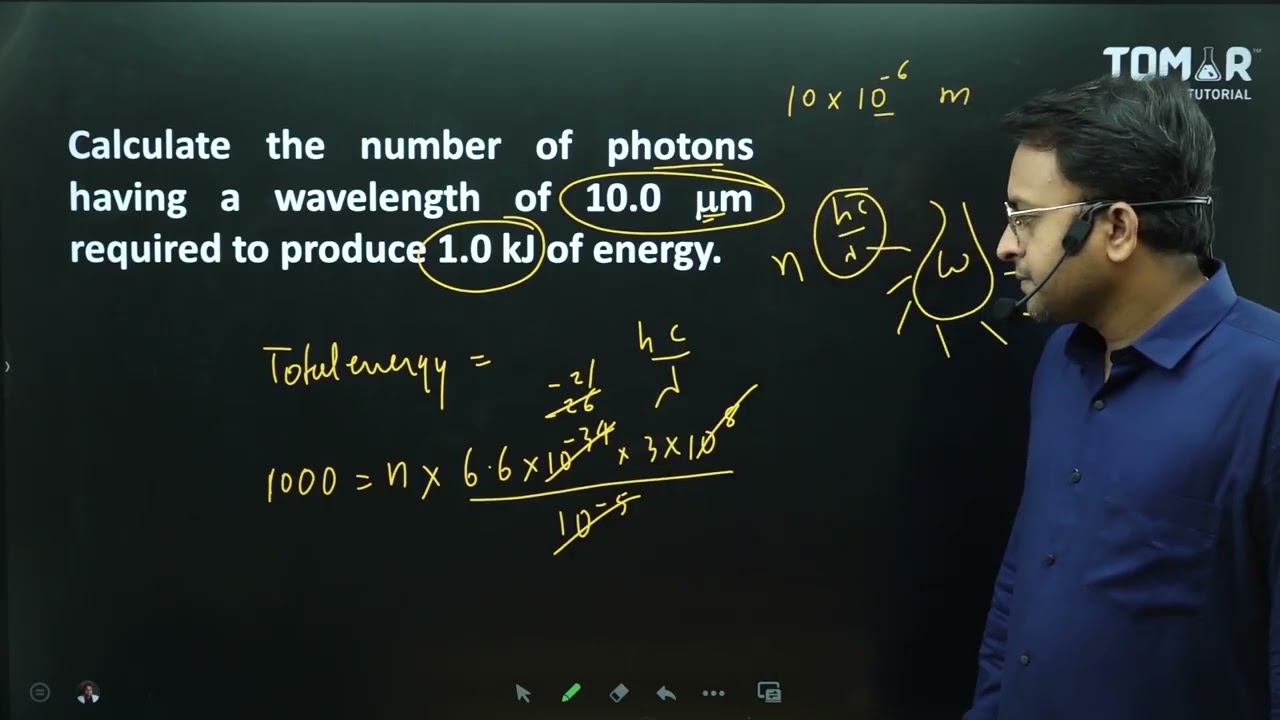 TOMAR™
TUTORIAL
10 × 10⁻⁶ m
Calculate the number of photons
having a wavelength of 10.0 μm
required to produce 1.0 kJ of energy.
n hc/λ
W
Total energy = hc/λ
-21
-26
1000 = n × 6.6 × 10⁻³⁴ × 3 × 10⁸
10⁻⁵